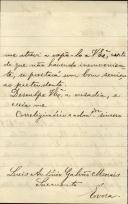 me atrevi a expôl-o a V.Exª, certo
de que não havendo inconvenien-
te, se prestará um bom serviço
ao pretendente.
Desculpe V.Exª a ousadia, e
creia-me
Correligionário e admor. sincero
Luis António Galvão Moraes
Évora